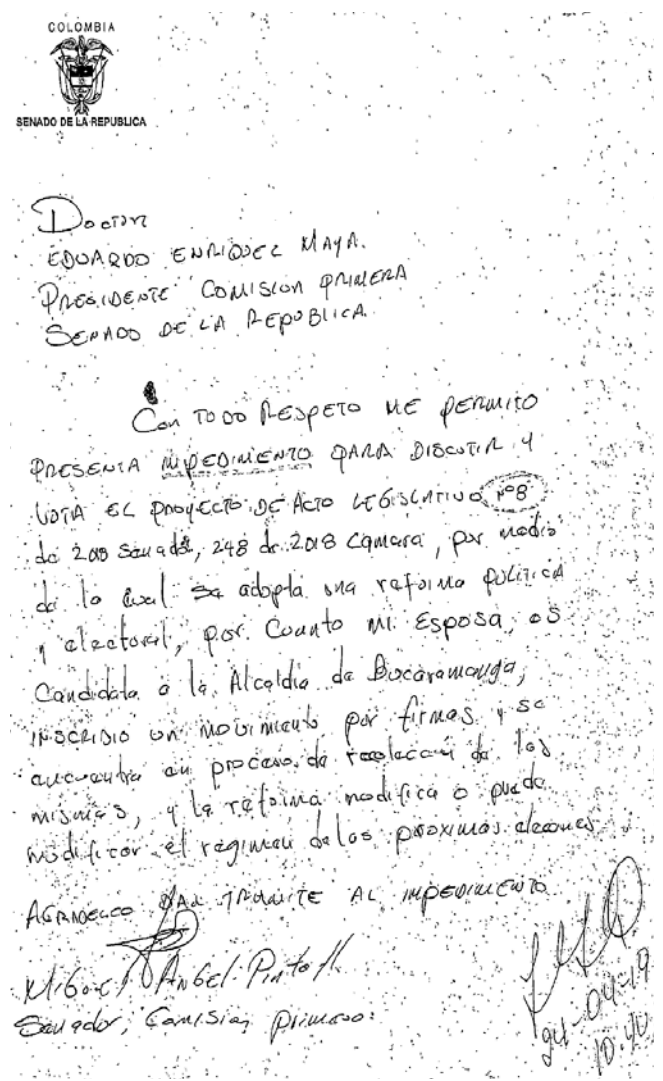 COLOMBIA
SENADO DE LA REPUBLICA
Doctor
EDUARDO ENRIQUEZ MAYA.
PRESIDENTE COMISION PRIMERA
SENADO DE LA REPUBLICA.
Con TODO RESPETO ME PERMITO
PRESENTA IMPEDIMENTO PARA DISCUTIR Y
VOTA EL PROYECTO DE ACTO LEGISLATIVO Nº8
de 2018 Senado, 248 de 2018 Camara, por medio
de la cual se adopta una reforma POLITICA
y electoral, por Cuanto mi Esposa es
Candidata a la Alcaldia de Bucaramanga,
INSCRIBIO un movimiento por firmas y se
encuentra en proceso de recoleccion de las
mismas, y la reforma modifica o puede
modificar el regimen de las proximas elecciones
AGRADEZCO DAR TRAMITE AL IMPEDIMENTO
Miguel Angel Pinto H.
Senador, Comision primera.
24-04-19
10:40